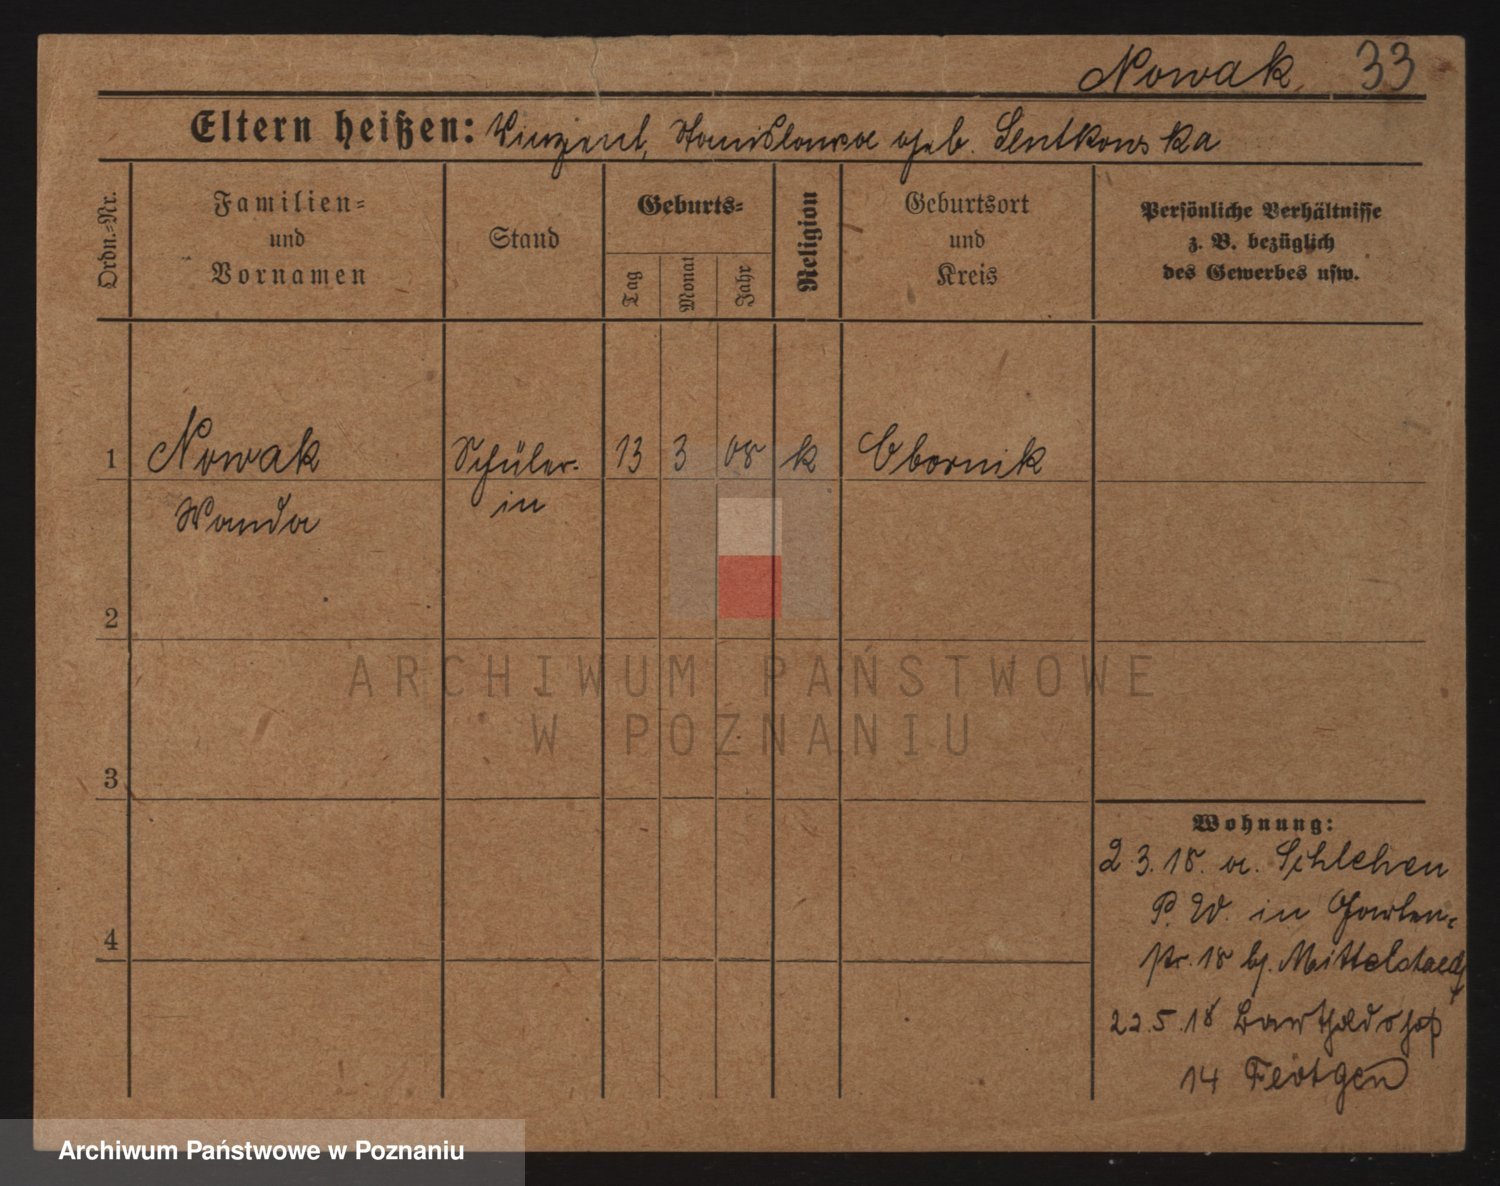 Nowak 33
Eltern heißen: Vinzent, Stanislawa geb. Sentkowska
Ordn.=Nr.
Familien=
und
Vornamen
Stand
Geburts=
Tag
Monat
Jahr
Religion
Geburtsort
und
Kreis
Persönliche Verhältnisse
z. B. bezüglich
des Gewerbes usw.
1 Nowak Schüler- 13 3 08 k Obornik
Wanda in
2
3
4
Wohnung:
2.3.18. a. Schlehen
P. W. in Garten-
str. 18 bj.
22.5.18
14
ARCHIWUM PAŃSTWOWE
W POZNANIU
Archiwum Państwowe w Poznaniu